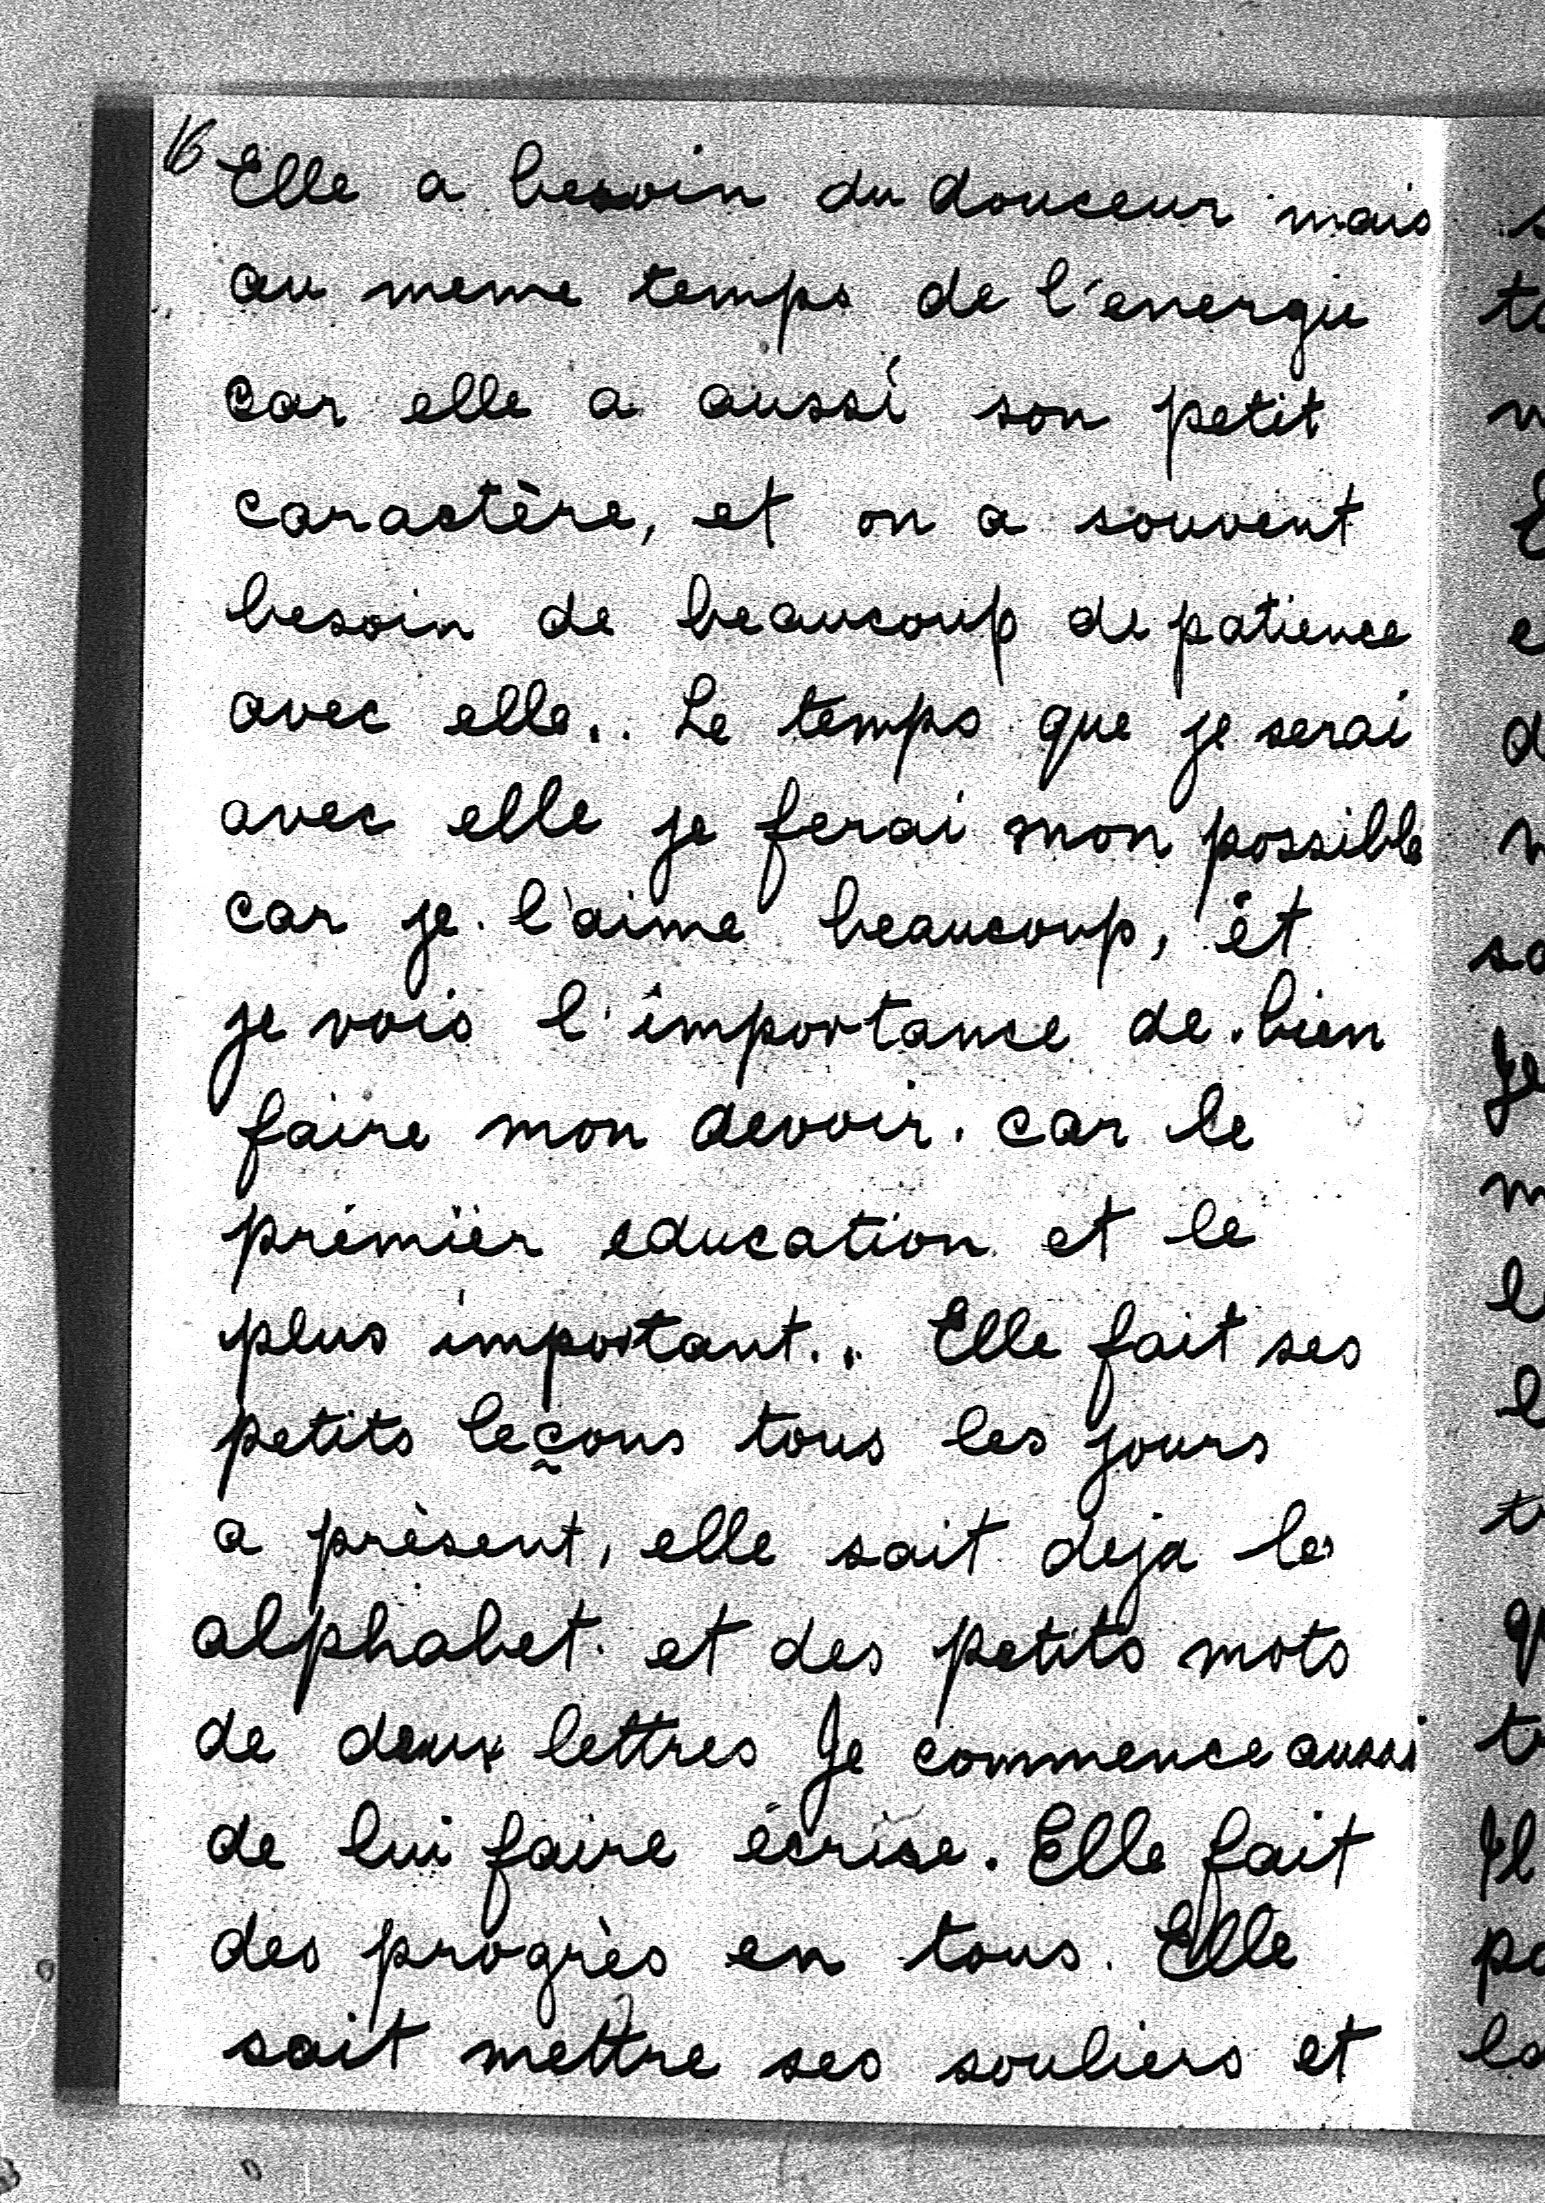 16 Elle a besoin du douceur mais
au meme temps de l'energie
car elle a aussi son petit
caractère, et on a souvent
besoin de beaucoup de patience
avec elle.. Le temps que je serai
avec elle je ferai mon possible
car je l'aime beaucoup, et
je vois l'importance de bien
faire mon devoir. car le
prémièr education et le
plus important.. Elle fait ses
petits leçons tous les jours
a prèsent, elle sait deja les
alphabet. et des petits mots
de deux lettres Je commence aussi
de lui faire écrise. Elle fait
des progrès en tous. Elle
sait mettre ses souliers et